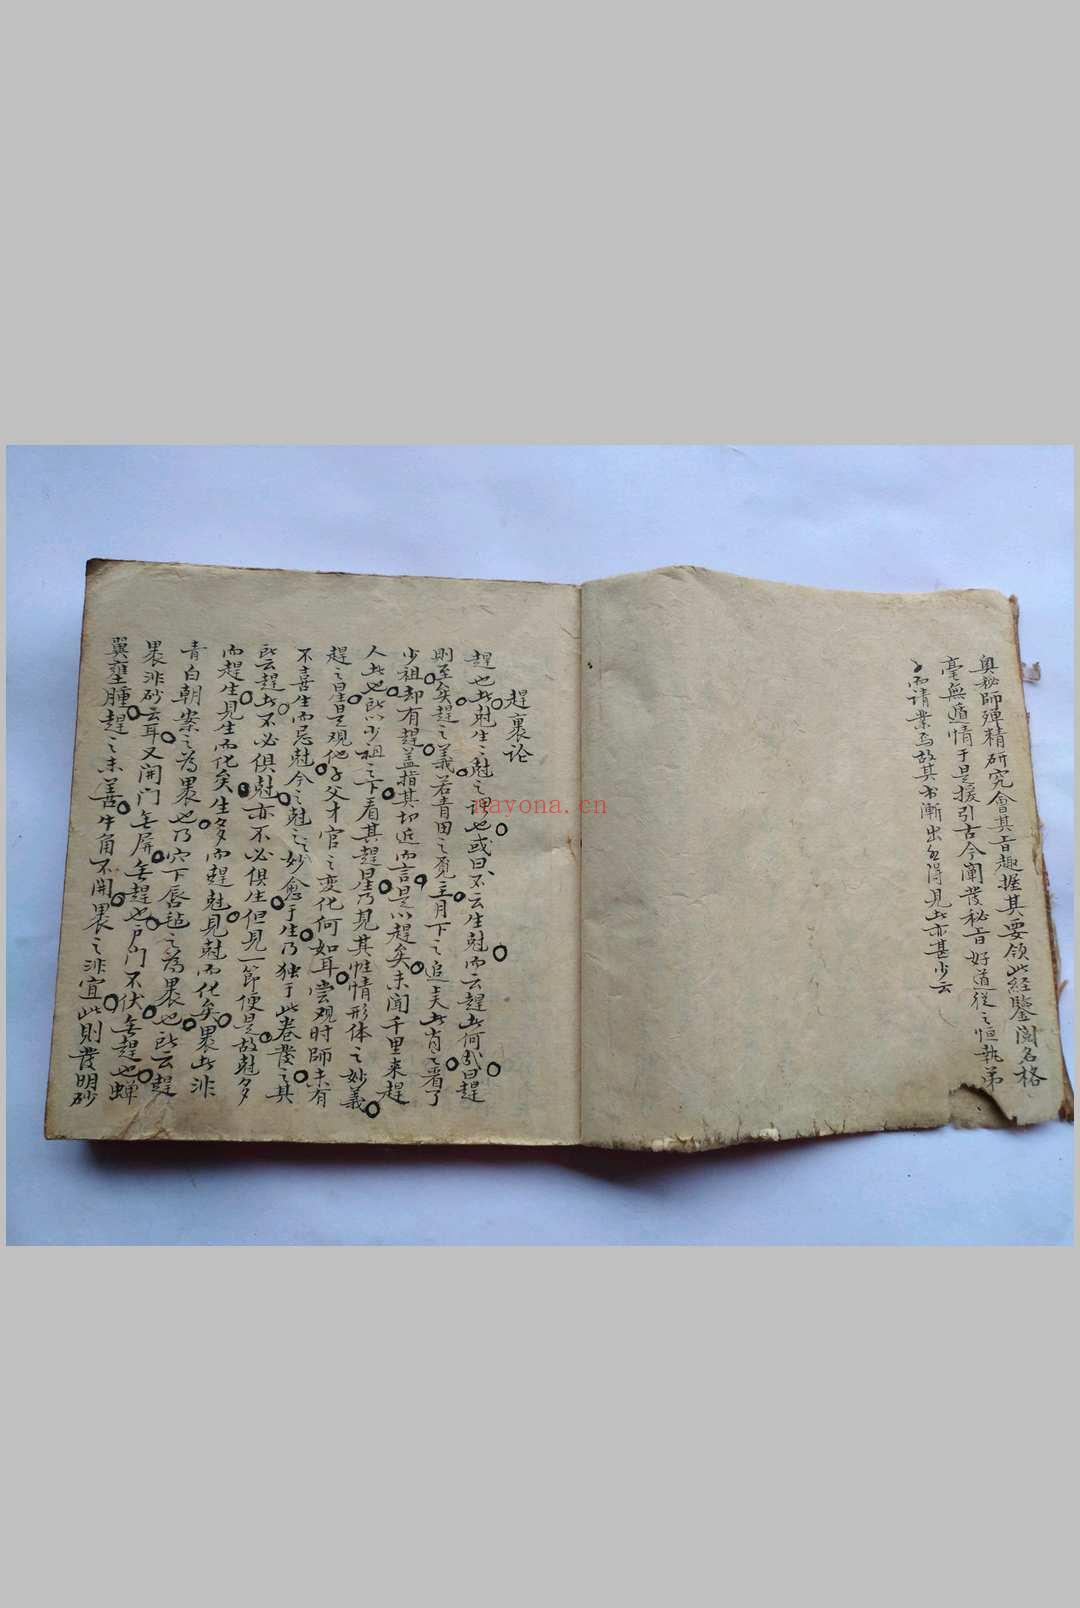 奥秘師殫精研究會其旨趣握其要領此經鑒閲名格
毫無遁情于是援引古今闡發秘旨好道從之恒執弟
子而請業焉故其书漸出忽得見此亦甚少云
趕裹论
趕也此尅生之尅之理也或曰不云生尅而云趕此何哉曰趕
則至矣趕之義若青田之覓主月下之追夫此肖之着了
少祖却有趕盖指其切近而言是以趕矣未闻千里来趕
人此也所以少祖之下看其趕星乃見其性情形体之妙義
趕之星是观他子父才官之变化何如耳尝观时師未有
不喜生而忌尅今之尅之妙愈于生乃独于此卷發之其
所云趕此不必俱尅亦不必俱生但見一節便是故尅多
而趕生見生而化矣生多而趕尅見尅而化矣裹此非
青白朝案之為裹也乃穴下唇毡之為裹也所云趕
裹非砂云耳又開门无屏无趕也户门不伏无趕也蝉
翼壅腫趕之未善牛角不開裹之非宜此則發明砂
nayona.cn